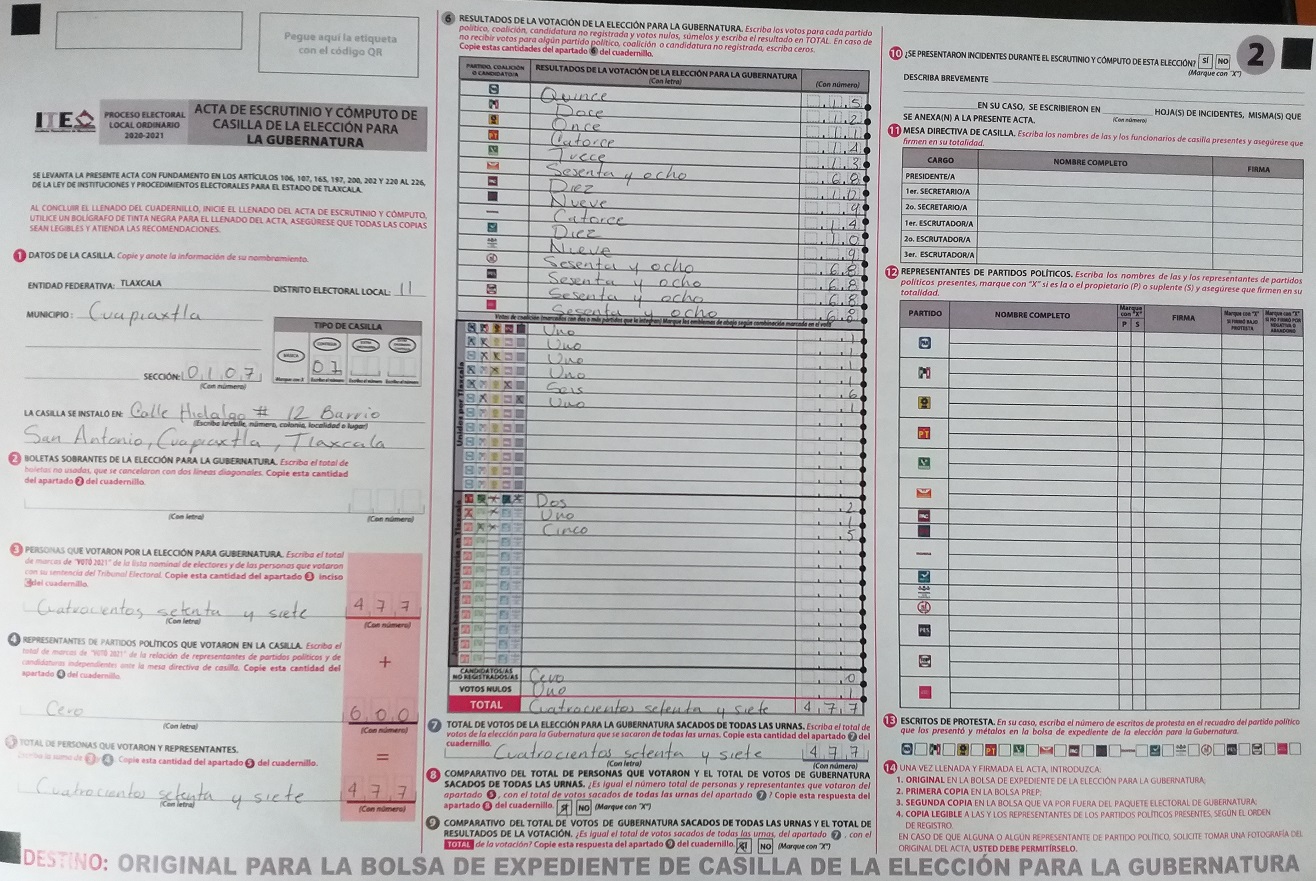 Pegue aquí la etiqueta
con el código QR
PROCESO ELECTORAL
LOCAL ORDINARIO
2020-2021
ACTA DE ESCRUTINIO Y CÓMPUTO DE
CASILLA DE LA ELECCIÓN PARA
LA GUBERNATURA
SE LEVANTA LA PRESENTE ACTA CON FUNDAMENTO EN LOS ARTÍCULOS 106, 107, 165, 197, 200, 202 Y 220 AL 226,
DE LA LEY DE INSTITUCIONES Y PROCEDIMIENTOS ELECTORALES PARA EL ESTADO DE TLAXCALA.
AL CONCLUIR EL LLENADO DEL CUADERNILLO, INICIE EL LLENADO DEL ACTA DE ESCRUTINIO Y CÓMPUTO,
UTILICE UN BOLÍGRAFO DE TINTA NEGRA PARA EL LLENADO DEL ACTA, ASEGÚRESE QUE TODAS LAS COPIAS
SEAN LEGIBLES Y ATIENDA LAS RECOMENDACIONES.
1 DATOS DE LA CASILLA. Copie y anote la información de su nombramiento.
ENTIDAD FEDERATIVA: TLAXCALA DISTRITO ELECTORAL LOCAL: 11
MUNICIPIO: Cuapiaxtla
TIPO DE CASILLA
BÁSICA
07
SECCIÓN: 0107
(Con número)
LA CASILLA SE INSTALÓ EN: Calle Hidalgo # 12 Barrio
(Escriba la calle, número, colonia, localidad o lugar)
San Antonio, Cuapiaxtla, Tlaxcala
2 BOLETAS SOBRANTES DE LA ELECCIÓN PARA LA GUBERNATURA. Escriba el total de
boletas no usadas, que se cancelaron con dos líneas diagonales. Copie esta cantidad
del apartado 2 del cuadernillo.
(Con letra) (Con número)
3 PERSONAS QUE VOTARON POR LA ELECCIÓN PARA GUBERNATURA. Escriba el total
de marcas de "VOTÓ 2021" de la lista nominal de electores y de las personas que votaron
con su sentencia del Tribunal Electoral. Copie esta cantidad del apartado 3 inciso
del cuadernillo.
Cuatrocientos setenta y siete 477
(Con letra) (Con número)
4 REPRESENTANTES DE PARTIDOS POLÍTICOS QUE VOTARON EN LA CASILLA. Escriba el
total de marcas de "VOTÓ 2021" de la relación de representantes de partidos políticos y de
candidaturas independientes ante la mesa directiva de casilla. Copie esta cantidad del
apartado 4 del cuadernillo.
+
Cero 600
(Con letra) (Con número)
5 TOTAL DE PERSONAS QUE VOTARON Y REPRESENTANTES.
Escriba la suma de 3 y 4. Copie esta cantidad del apartado 5 del cuadernillo.
=
Cuatrocientos setenta y siete 477
(Con letra) (Con número)
6 RESULTADOS DE LA VOTACIÓN DE LA ELECCIÓN PARA LA GUBERNATURA. Escriba los votos para cada partido
político, coalición, candidatura no registrada y votos nulos, súmelos y escriba el resultado en TOTAL. En caso de
no recibir votos para algún partido político, coalición o candidatura no registrada, escriba ceros.
Copie estas cantidades del apartado 6 del cuadernillo.
PARTIDO, COALICIÓN
O CANDIDATO/A
RESULTADOS DE LA VOTACIÓN DE LA ELECCIÓN PARA LA GUBERNATURA
(Con letra) (Con número)
Quince 15
Doce 12
Once 11
PT Catorce 14
Trece 13
Sesenta y ocho 68
PAC Diez 10
Nueve 9
Catorce 14
Diez 10
Nueve 9
Sesenta y ocho 68
PES Sesenta y ocho 68
Sesenta y ocho 68
Sesenta y ocho 68
Unidos por Tlaxcala
Uno 1
Uno 1
Uno 1
Uno 1
Seis 6
Uno 1
Dos 2
Uno 1
Cinco 5
CANDIDATOS/AS
NO REGISTRADOS/AS Cero 0
VOTOS NULOS Uno 1
TOTAL Cuatrocientos setenta y siete 477
7 TOTAL DE VOTOS DE LA ELECCIÓN PARA LA GUBERNATURA SACADOS DE TODAS LAS URNAS. Escriba el total de
votos de la elección para Gubernatura que se sacaron de todas las urnas. Copie esta cantidad del apartado 7 del
cuadernillo.
Cuatrocientos setenta y siete 477
(Con letra) (Con número)
8 COMPARATIVO DEL TOTAL DE PERSONAS QUE VOTARON Y EL TOTAL DE VOTOS DE GUBERNATURA
SACADOS DE TODAS LAS URNAS. ¿Es igual el número total de personas y representantes que votaron del
apartado 5, con el total de votos sacados de todas las urnas del apartado 7? Copie esta respuesta del
apartado 8 del cuadernillo. SÍ NO (Marque con "X")
9 COMPARATIVO DEL TOTAL DE VOTOS DE GUBERNATURA SACADOS DE TODAS LAS URNAS Y EL TOTAL DE
RESULTADOS DE LA VOTACIÓN. ¿Es igual el total de votos sacados de todas las urnas, del apartado 7, con el
TOTAL de la votación? Copie esta respuesta del apartado 9 del cuadernillo. SÍ NO (Marque con "X")
10 ¿SE PRESENTARON INCIDENTES DURANTE EL ESCRUTINIO Y CÓMPUTO DE ESTA ELECCIÓN? SÍ NO
(Marque con "X")
2
DESCRIBA BREVEMENTE
EN SU CASO, SE ESCRIBIERON EN HOJA(S) DE INCIDENTES, MISMA(S) QUE
(Con número)
SE ANEXA(N) A LA PRESENTE ACTA.
11 MESA DIRECTIVA DE CASILLA. Escriba los nombres de las y los funcionarios de casilla presentes y asegúrese que
firmen en su totalidad.
CARGO NOMBRE COMPLETO FIRMA
PRESIDENTE/A
1er. SECRETARIO/A
2o. SECRETARIO/A
1er. ESCRUTADOR/A
2o. ESCRUTADOR/A
3er. ESCRUTADOR/A
12 REPRESENTANTES DE PARTIDOS POLÍTICOS. Escriba los nombres de las y los representantes de partidos
políticos presentes, marque con "X" si es la o el propietario (P) o suplente (S) y asegúrese que firmen en su
totalidad.
PARTIDO NOMBRE COMPLETO Marque con "X" P S FIRMA Marque con "X" SI FIRMÓ BAJO PROTESTA Marque con "X" SI NO FIRMÓ POR NEGATIVA O ABANDONO
PT
PAC
PES
13 ESCRITOS DE PROTESTA. En su caso, escriba el número de escritos de protesta en el recuadro del partido político
que los presentó y métalos en la bolsa de expediente de la elección para Gubernatura.
14 UNA VEZ LLENADA Y FIRMADA EL ACTA, INTRODUZCA:
1. ORIGINAL EN LA BOLSA DE EXPEDIENTE DE LA ELECCIÓN PARA LA GUBERNATURA;
2. PRIMERA COPIA EN LA BOLSA PREP;
3. SEGUNDA COPIA EN LA BOLSA QUE VA POR FUERA DEL PAQUETE ELECTORAL DE GUBERNATURA;
4. COPIA LEGIBLE A LAS Y LOS REPRESENTANTES DE LOS PARTIDOS POLÍTICOS PRESENTES, SEGÚN EL ORDEN
DE REGISTRO.
EN CASO DE QUE ALGUNA O ALGÚN REPRESENTANTE DE PARTIDO POLÍTICO, SOLICITE TOMAR UNA FOTOGRAFÍA DEL
ORIGINAL DEL ACTA, USTED DEBE PERMITÍRSELO.
DESTINO: ORIGINAL PARA LA BOLSA DE EXPEDIENTE DE CASILLA DE LA ELECCIÓN PARA LA GUBERNATURA